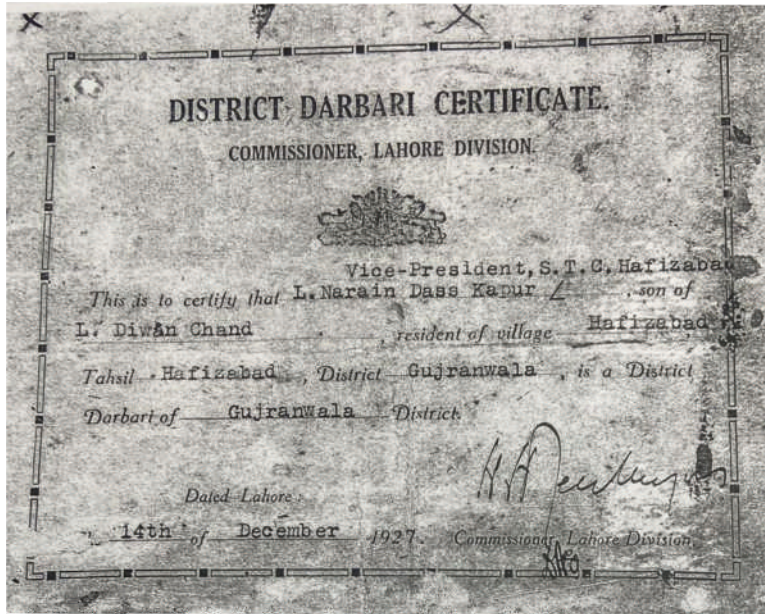 DISTRICT DARBARI CERTIFICATE.
COMMISSIONER, LAHORE DIVISION.
Vice-President, S.T.C, Hafizabad
This is to certify that L.Narain Dass Kapur , son of
L. Diwan Chand , resident of village Hafizabad
Tahsil Hafizabad , District Gujranwala , is a District
Darbari of Gujranwala District.
Dated Lahore :
14th of December 1927. Commissioner, Lahore Division.